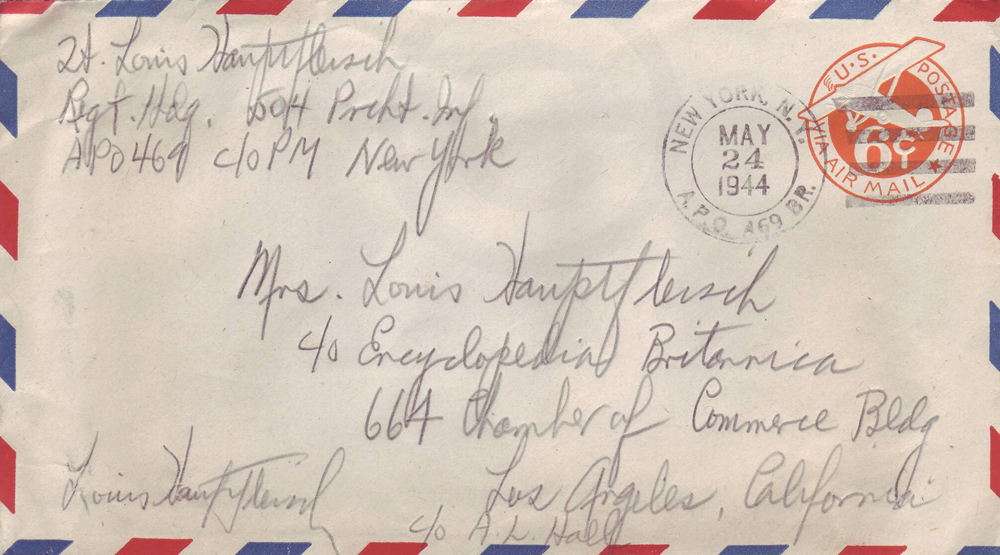 Lt. Louis Hauptfleisch
Rgt. Hdq. 504 Prcht. Inf.
APO 469 c/o PM New York
NEW YORK, N.Y.
MAY
24
1944
A.P.O. 469 BR.
U.S. POSTAGE
6¢
VIA AIR MAIL
Mrs. Louis Hauptfleisch
c/o Encyclopedia Britannica
664 Chamber of Commerce Bldg
Los Angeles, California
Louis Hauptfleisch
c/o A.L. Hall